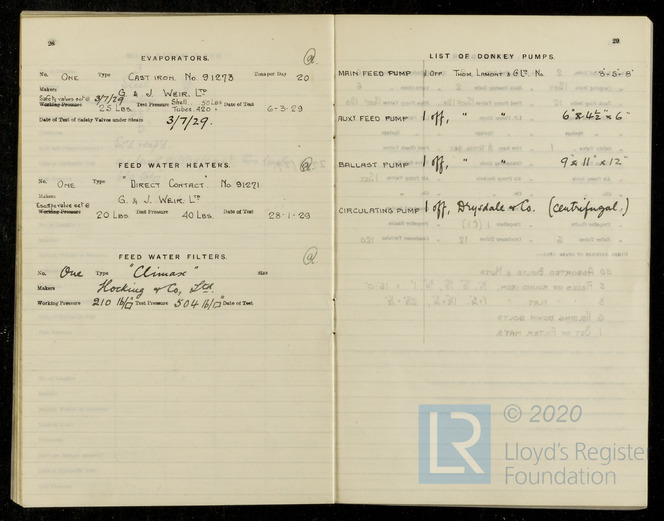 28
EVAPORATORS.
No. ONE Type CAST IRON. No. 91273 Tons per Day 20
Makers G. & J. WEIR. LTD
Safety valves set @ 3/7/29 Shell. 50 Lbs
Working Pressure 25 LBS. Test Pressure Tubes. 420 " Date of Test 6-3-29
Date of Test of Safety Valves under Steam 3/7/29.
FEED WATER HEATERS.
No. ONE Type "DIRECT CONTACT" No. 91271
Makers G. & J. WEIR. LTD
Escape valve set @
Working Pressure 20 LBS Test Pressure 40 LBS. Date of Test 28-1-29
FEED WATER FILTERS.
No. One Type "Climax" Size
Makers Hocking & Co, Ltd.
Working Pressure 210 lb/□" Test Pressure 504 lb/□" Date of Test
29
LIST OF DONKEY PUMPS.
MAIN FEED PUMP 1 OFF. THOM, LAMONT & Co LTD. No. 8"-5"-8"
AUXY FEED PUMP 1 off, " " 6" x 4½ x 6"
BALLAST PUMP 1 off, " " 9" x 11" x 12"
CIRCULATING PUMP 1 off, Drysdale & Co. (centrifugal.)
LR
© 2020
Lloyd's Register
Foundation